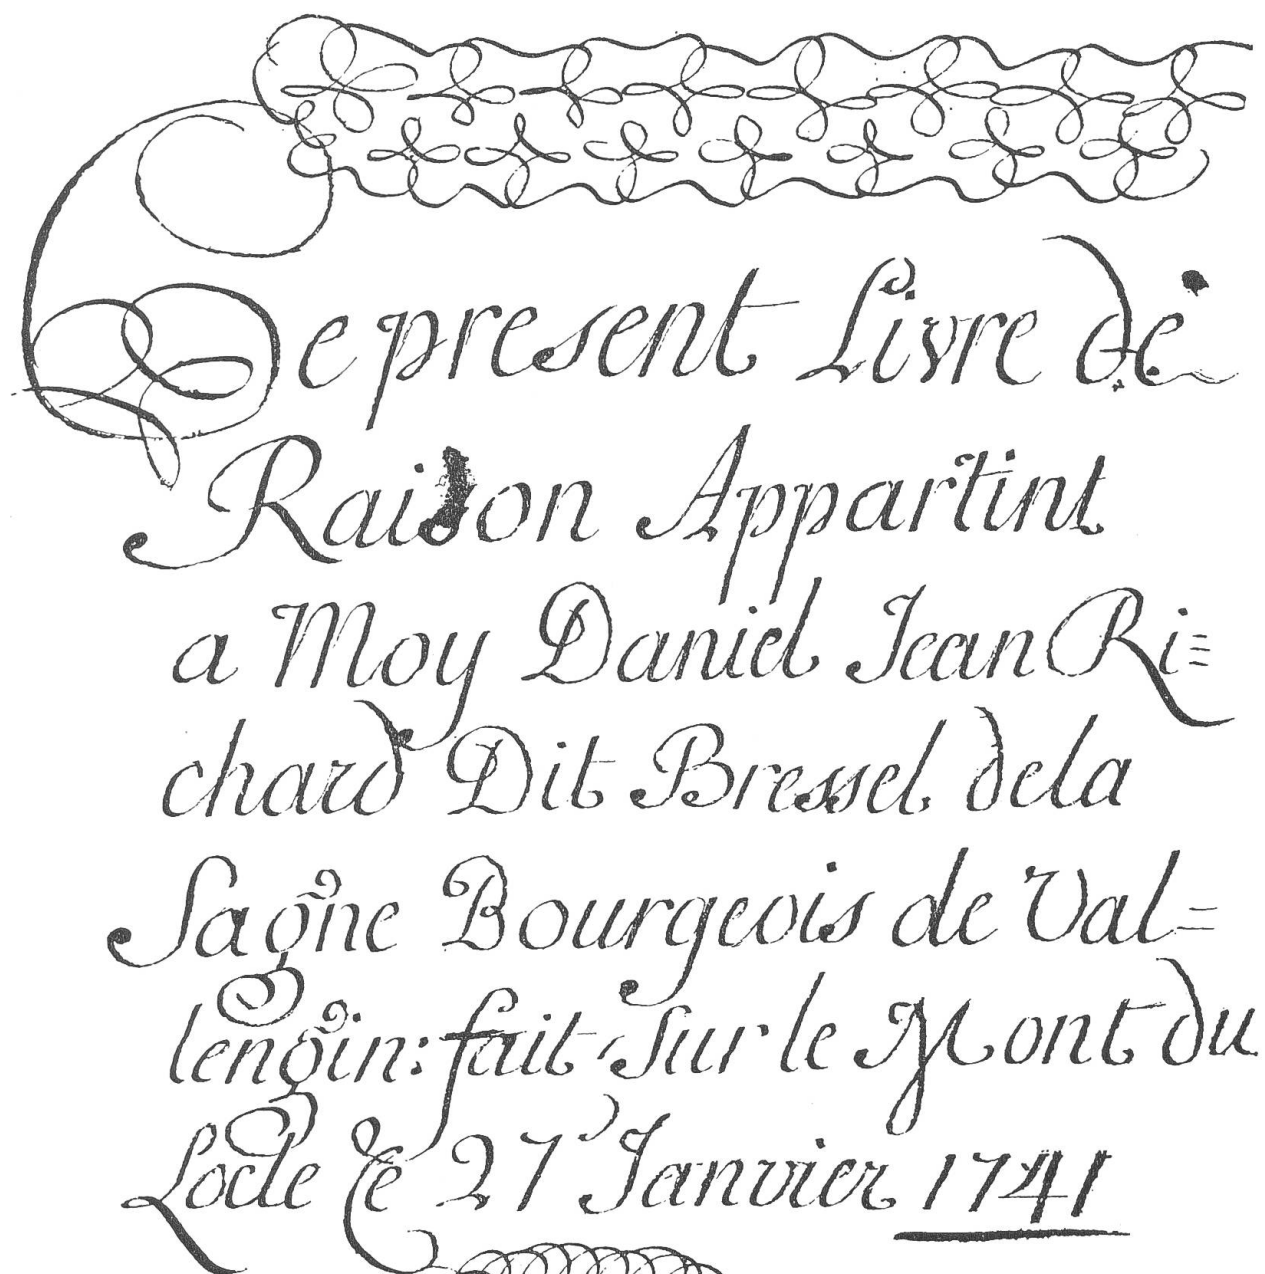 Ce present Livre de
Raison Appartint
a Moy Daniel Jean Ri=
chard Dit Bressel dela
Sagne Bourgeois de Val=
lengin: fait sur le Mont du
Locle Le 27 Janvier 1741